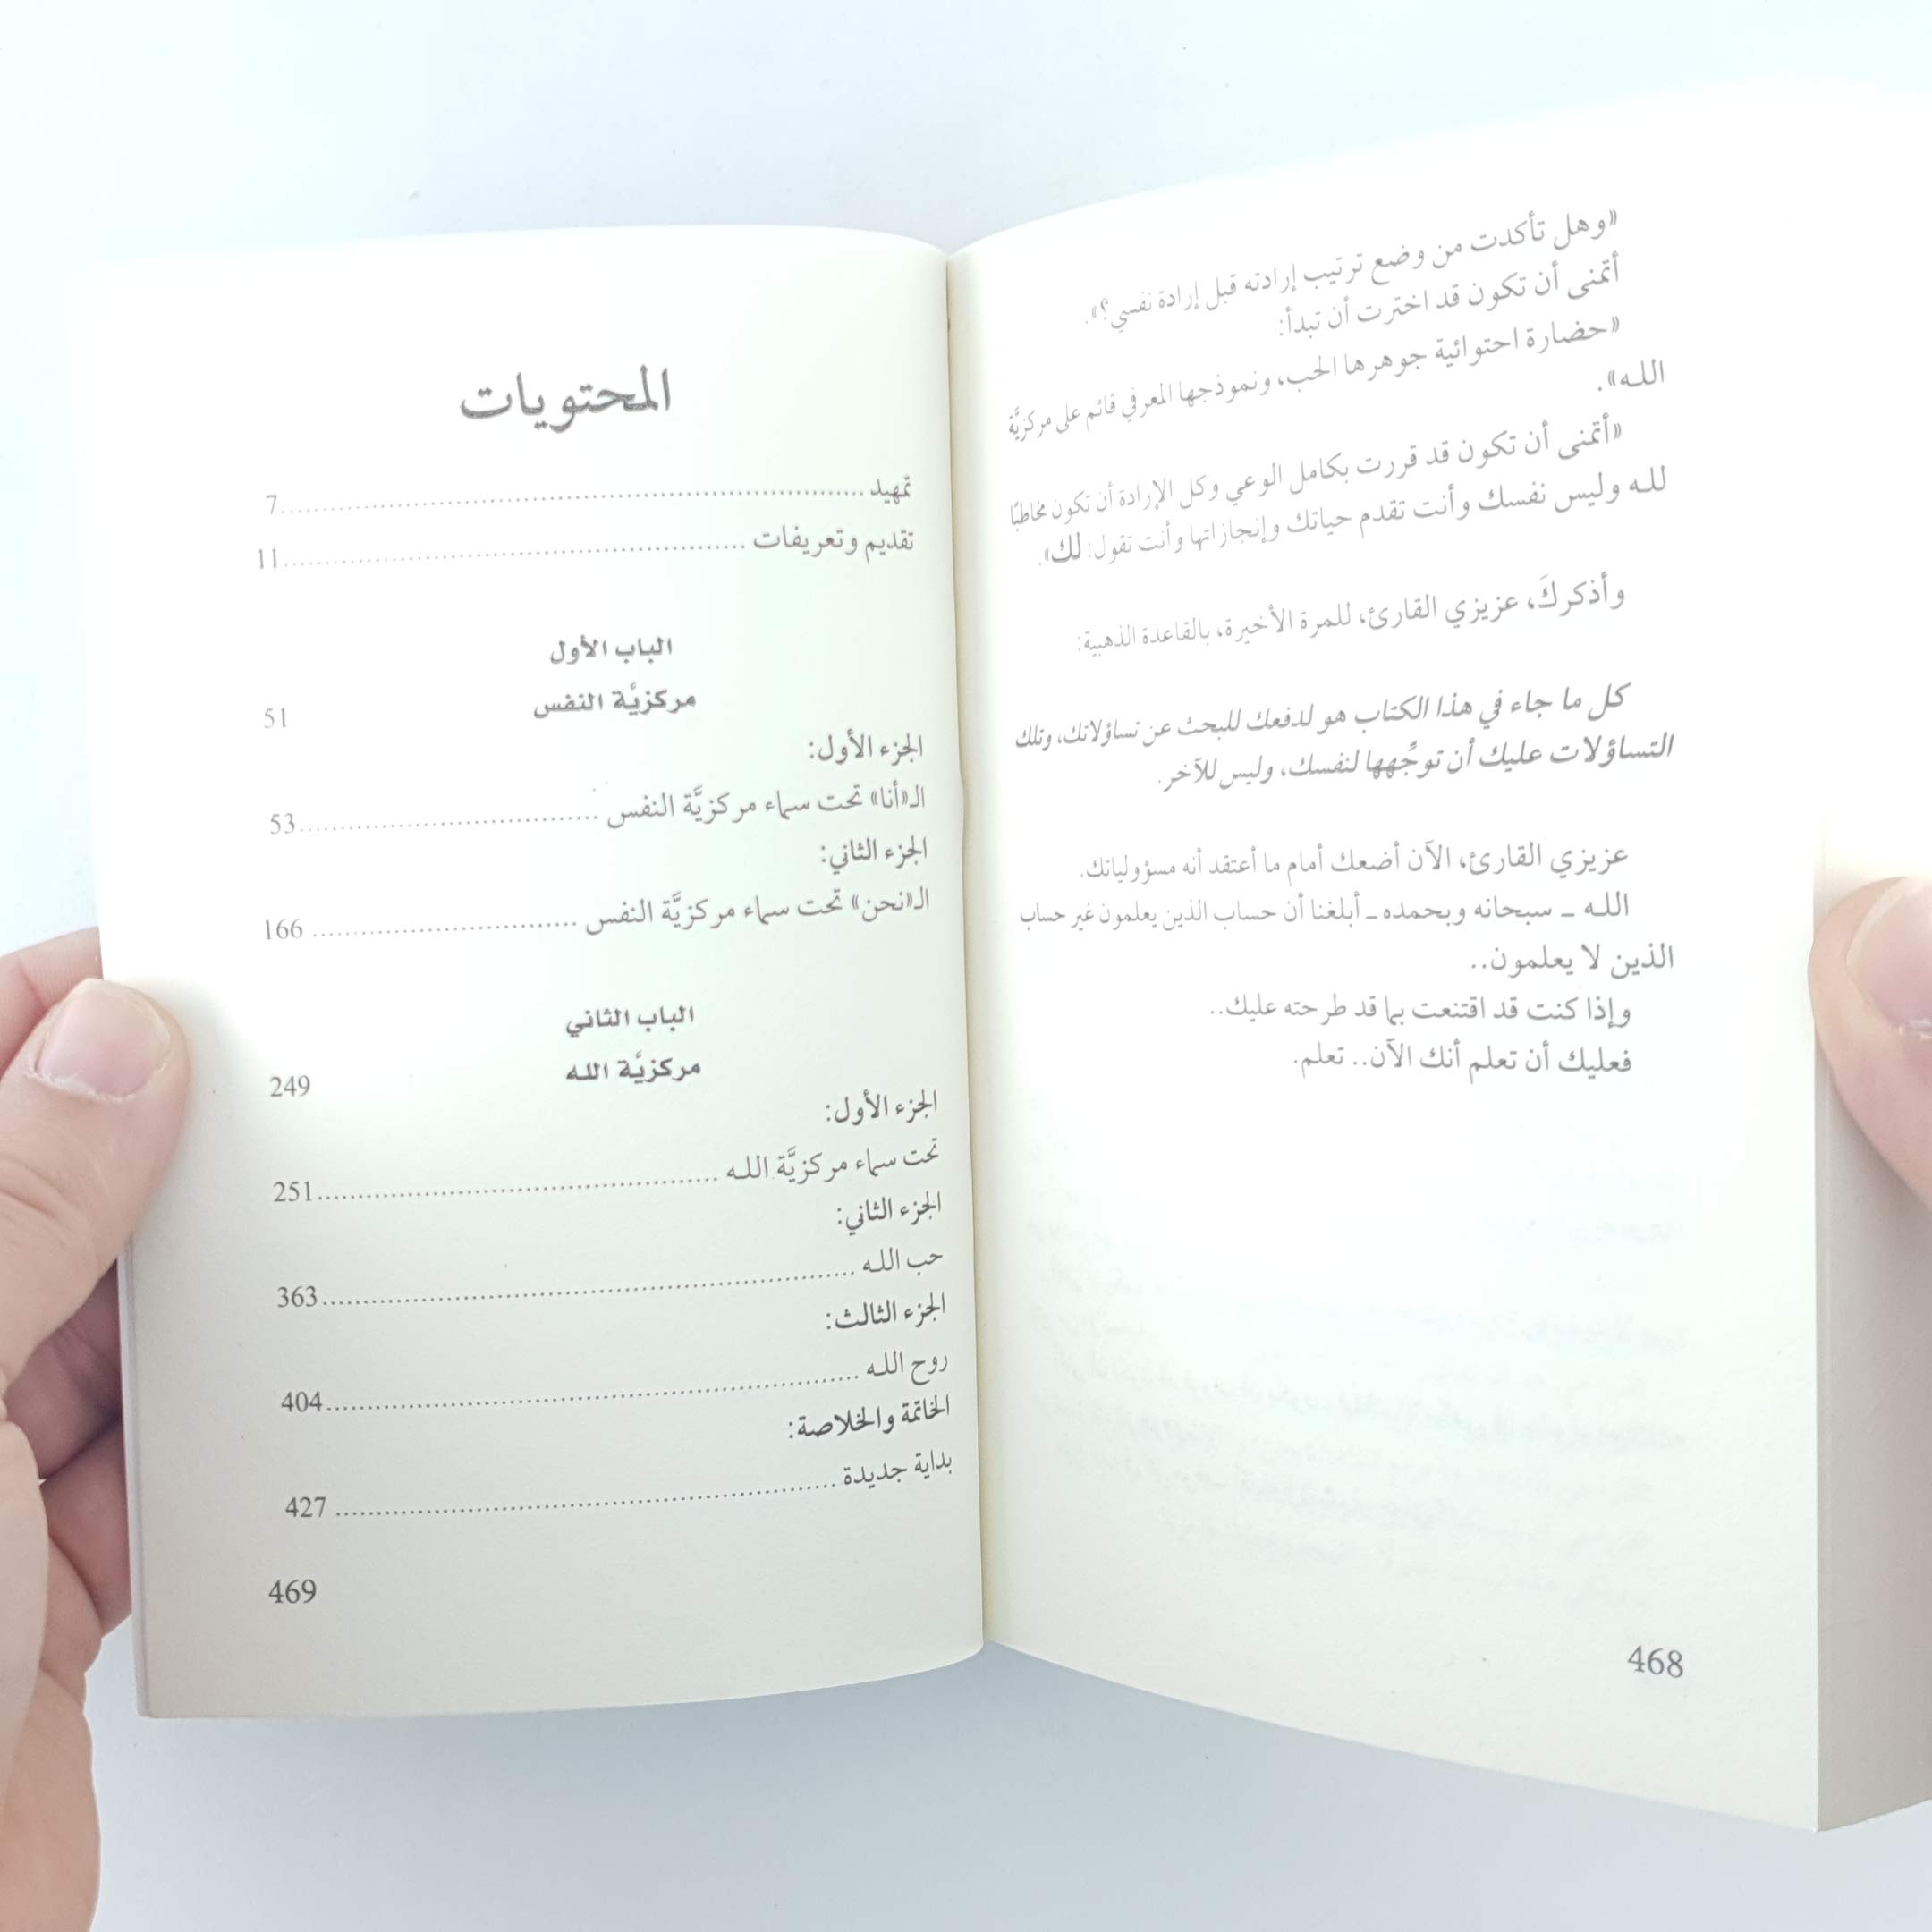 «وهل تأكدت من وضع ترتيب إرادته قبل إرادة نفسي؟».
أتمنى أن تكون قد اخترت أن تبدأ:
«حضارة احتوائية جوهرها الحب، ونموذجها المعرفي قائم على مركزيَّة
الله».
«أتمنى أن تكون قد قررت بكامل الوعي وكل الإرادة أن تكون مخاطبًا
لله وليس نفسك وأنت تقدم حياتك وإنجازاتها وأنت تقول: لك».
وأذكركَ، عزيزي القارئ، للمرة الأخيرة، بالقاعدة الذهبية:
كل ما جاء في هذا الكتاب هو لدفعك للبحث عن تساؤلاتك، وتلك
التساؤلات عليك أن توجِّهها لنفسك، وليس للآخر.
عزيزي القارئ، الآن أضعك أمام ما أعتقد أنه مسؤولياتك.
الله ـ سبحانه وبحمده ـ أبلغنا أن حساب الذين يعلمون غير حساب
الذين لا يعلمون..
وإذا كنت قد اقتنعت بما قد طرحته عليك..
فعليك أن تعلم أنك الآن.. تعلم.
468
المحتويات
تمهيد ........ 7
تقديم وتعريفات ........ 11
الباب الأول
مركزيَّة النفس 51
الجزء الأول:
الـ«أنا» تحت سماء مركزيَّة النفس ........ 53
الجزء الثاني:
الـ«نحن» تحت سماء مركزيَّة النفس ........ 166
الباب الثاني
مركزيَّة الله 249
الجزء الأول:
تحت سماء مركزيَّة الله ........ 251
الجزء الثاني:
حب الله ........ 363
الجزء الثالث:
روح الله ........ 404
الخاتمة والخلاصة:
بداية جديدة ........ 427
469